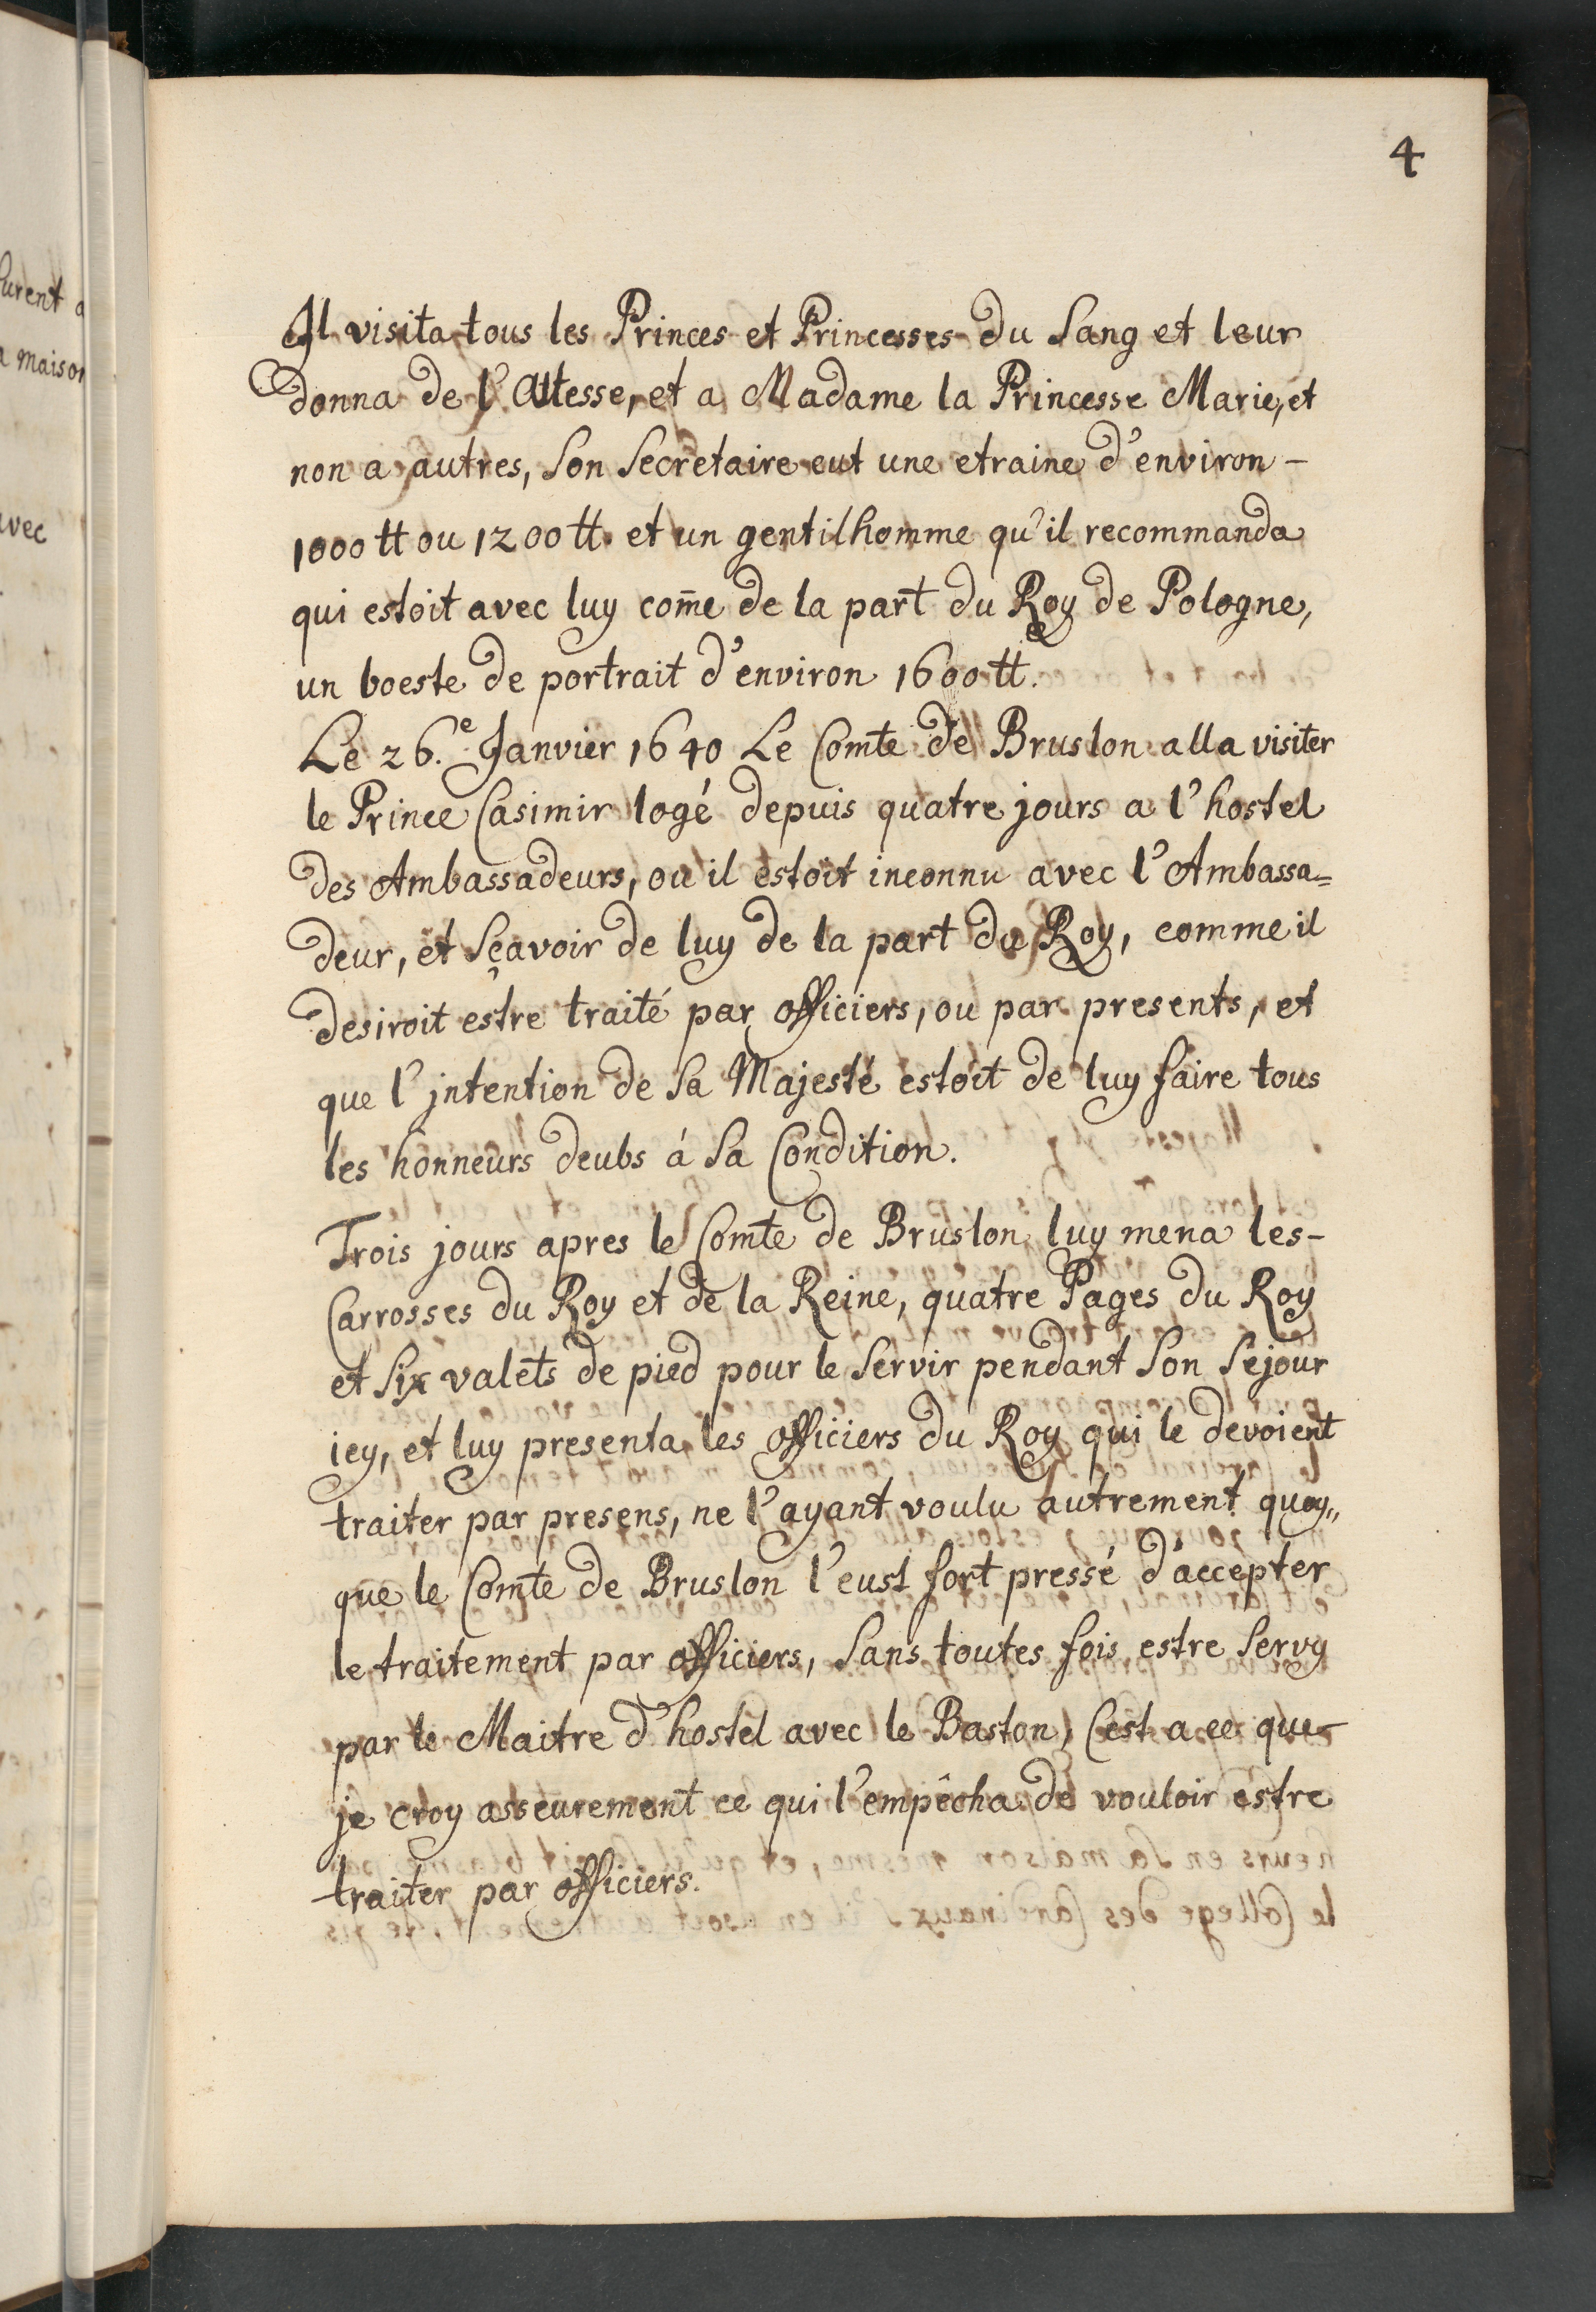 4
Il visita tous les Princes et Princesses du Sang et leur
donna de l'Altesse, et a Madame la Princesse Marie, et
non a autres, Son Secretaire eut une etraine d'environ -
1000 tt ou 1200 tt. et un gentilhomme qu'il recommanda
qui estoit avec luy com̄e de la part du Roy de Pologne,
un boeste de portrait d'environ 1600 tt.
Le 26.e Janvier 1640 Le Comte de Bruslon alla visiter
le Prince Casimir logé depuis quatre jours a l'hostel
des Ambassadeurs, ou il estoit inconnu avec l'Ambassa=
deur, et Sçavoir de luy de la part du Roy, comme il
desiroit estre traité par officiers, ou par presents, et
que l'jntention de Sa Majesté estoit de luy faire tous
les honneurs deubs á Sa Condition.
Trois jours apres le Comte de Bruslon luy mena les-
Carrosses du Roy et de la Reine, quatre Pages du Roy
et Six valets de pied pour le Servir pendant Son Sejour
icy, et luy presenta les officiers du Roy qui le devoient
traiter par presens, ne l'ayant voulu autrement quoy„
que le Comte de Bruslon l'eust fort pressé d'accepter
le traitement par officiers, Sans toutes fois estre Servy
par le Maitre d'hostel avec le Baston, Cest a ce que-
je croy asseurement ce qui l'empêcha de vouloir estre
traiter par officiers.
urent a
a maison
avec